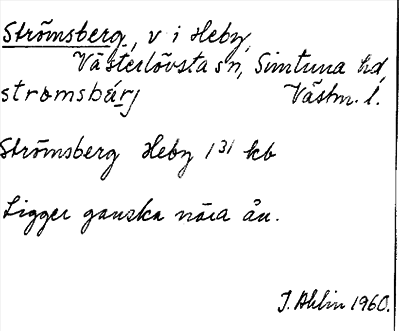 Strömsberg, v i Heby,
Västerlövsta sn, Simtuna hd,
strömsbärj Västm. l.
Strömsberg Heby 1 31 kb
Ligger ganska nära ån.
J. Ahlin 1960.